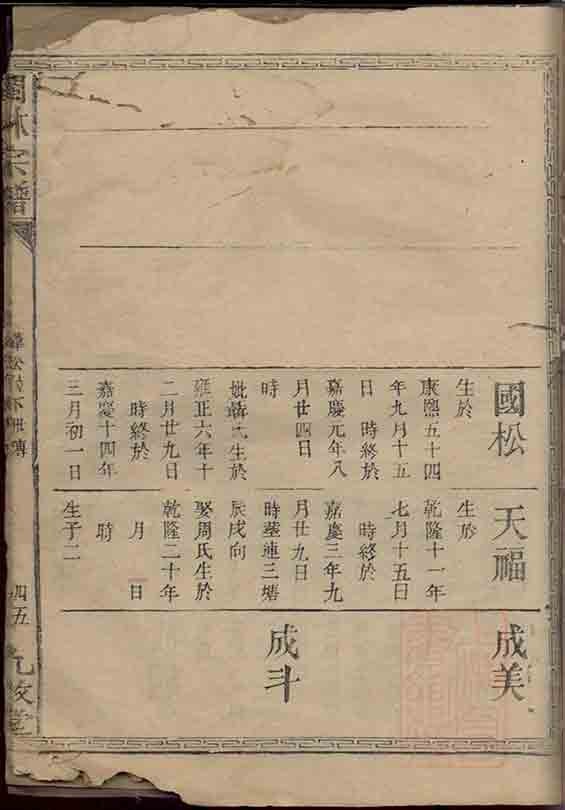 國松
生於
康熙五十四
年九月十五
日 時終於
嘉慶元年八
月廿四日
時
妣 氏生於
雍正六年十
二月廿九日
時終於
嘉慶十四年
三月初一日
天福
生於
乾隆十一年
七月十五日
時終於
嘉慶三年九
月廿九日
時塟蓮三塘
辰戌向
娶周氏生於
乾隆二十年
月 日
時
生子二
成美
成斗
林宗譜
松 下世傳
四五
九牧堂